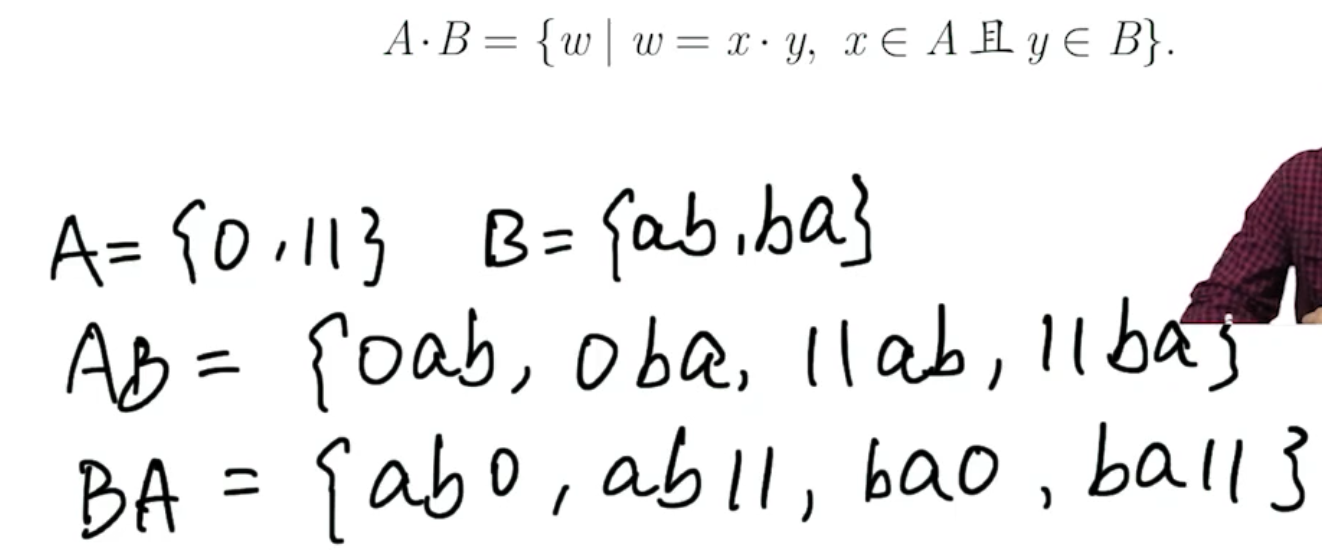 A·B = {w | w = x · y, x ∈ A 且 y ∈ B}.
A = {0, 11} B = {ab, ba}
AB = {0ab, 0ba, 11ab, 11ba}
BA = {ab0, ab11, ba0, ba11}